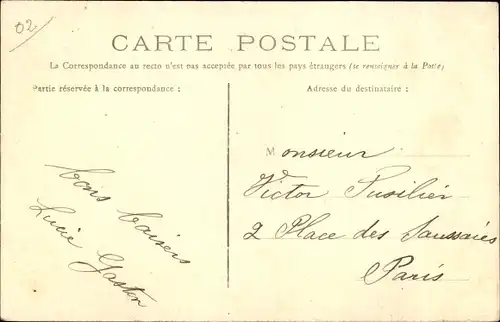 02
CARTE POSTALE
La Correspondance au recto n'est pas acceptée par tous les pays étrangers (se renseigner à la Poste)
Partie réservée à la correspondance :
Adresse du destinataire :
Bons baisers
Lucie Gaston
Monsieur
Victor Pusilier
2 Place des Saussaies
Paris